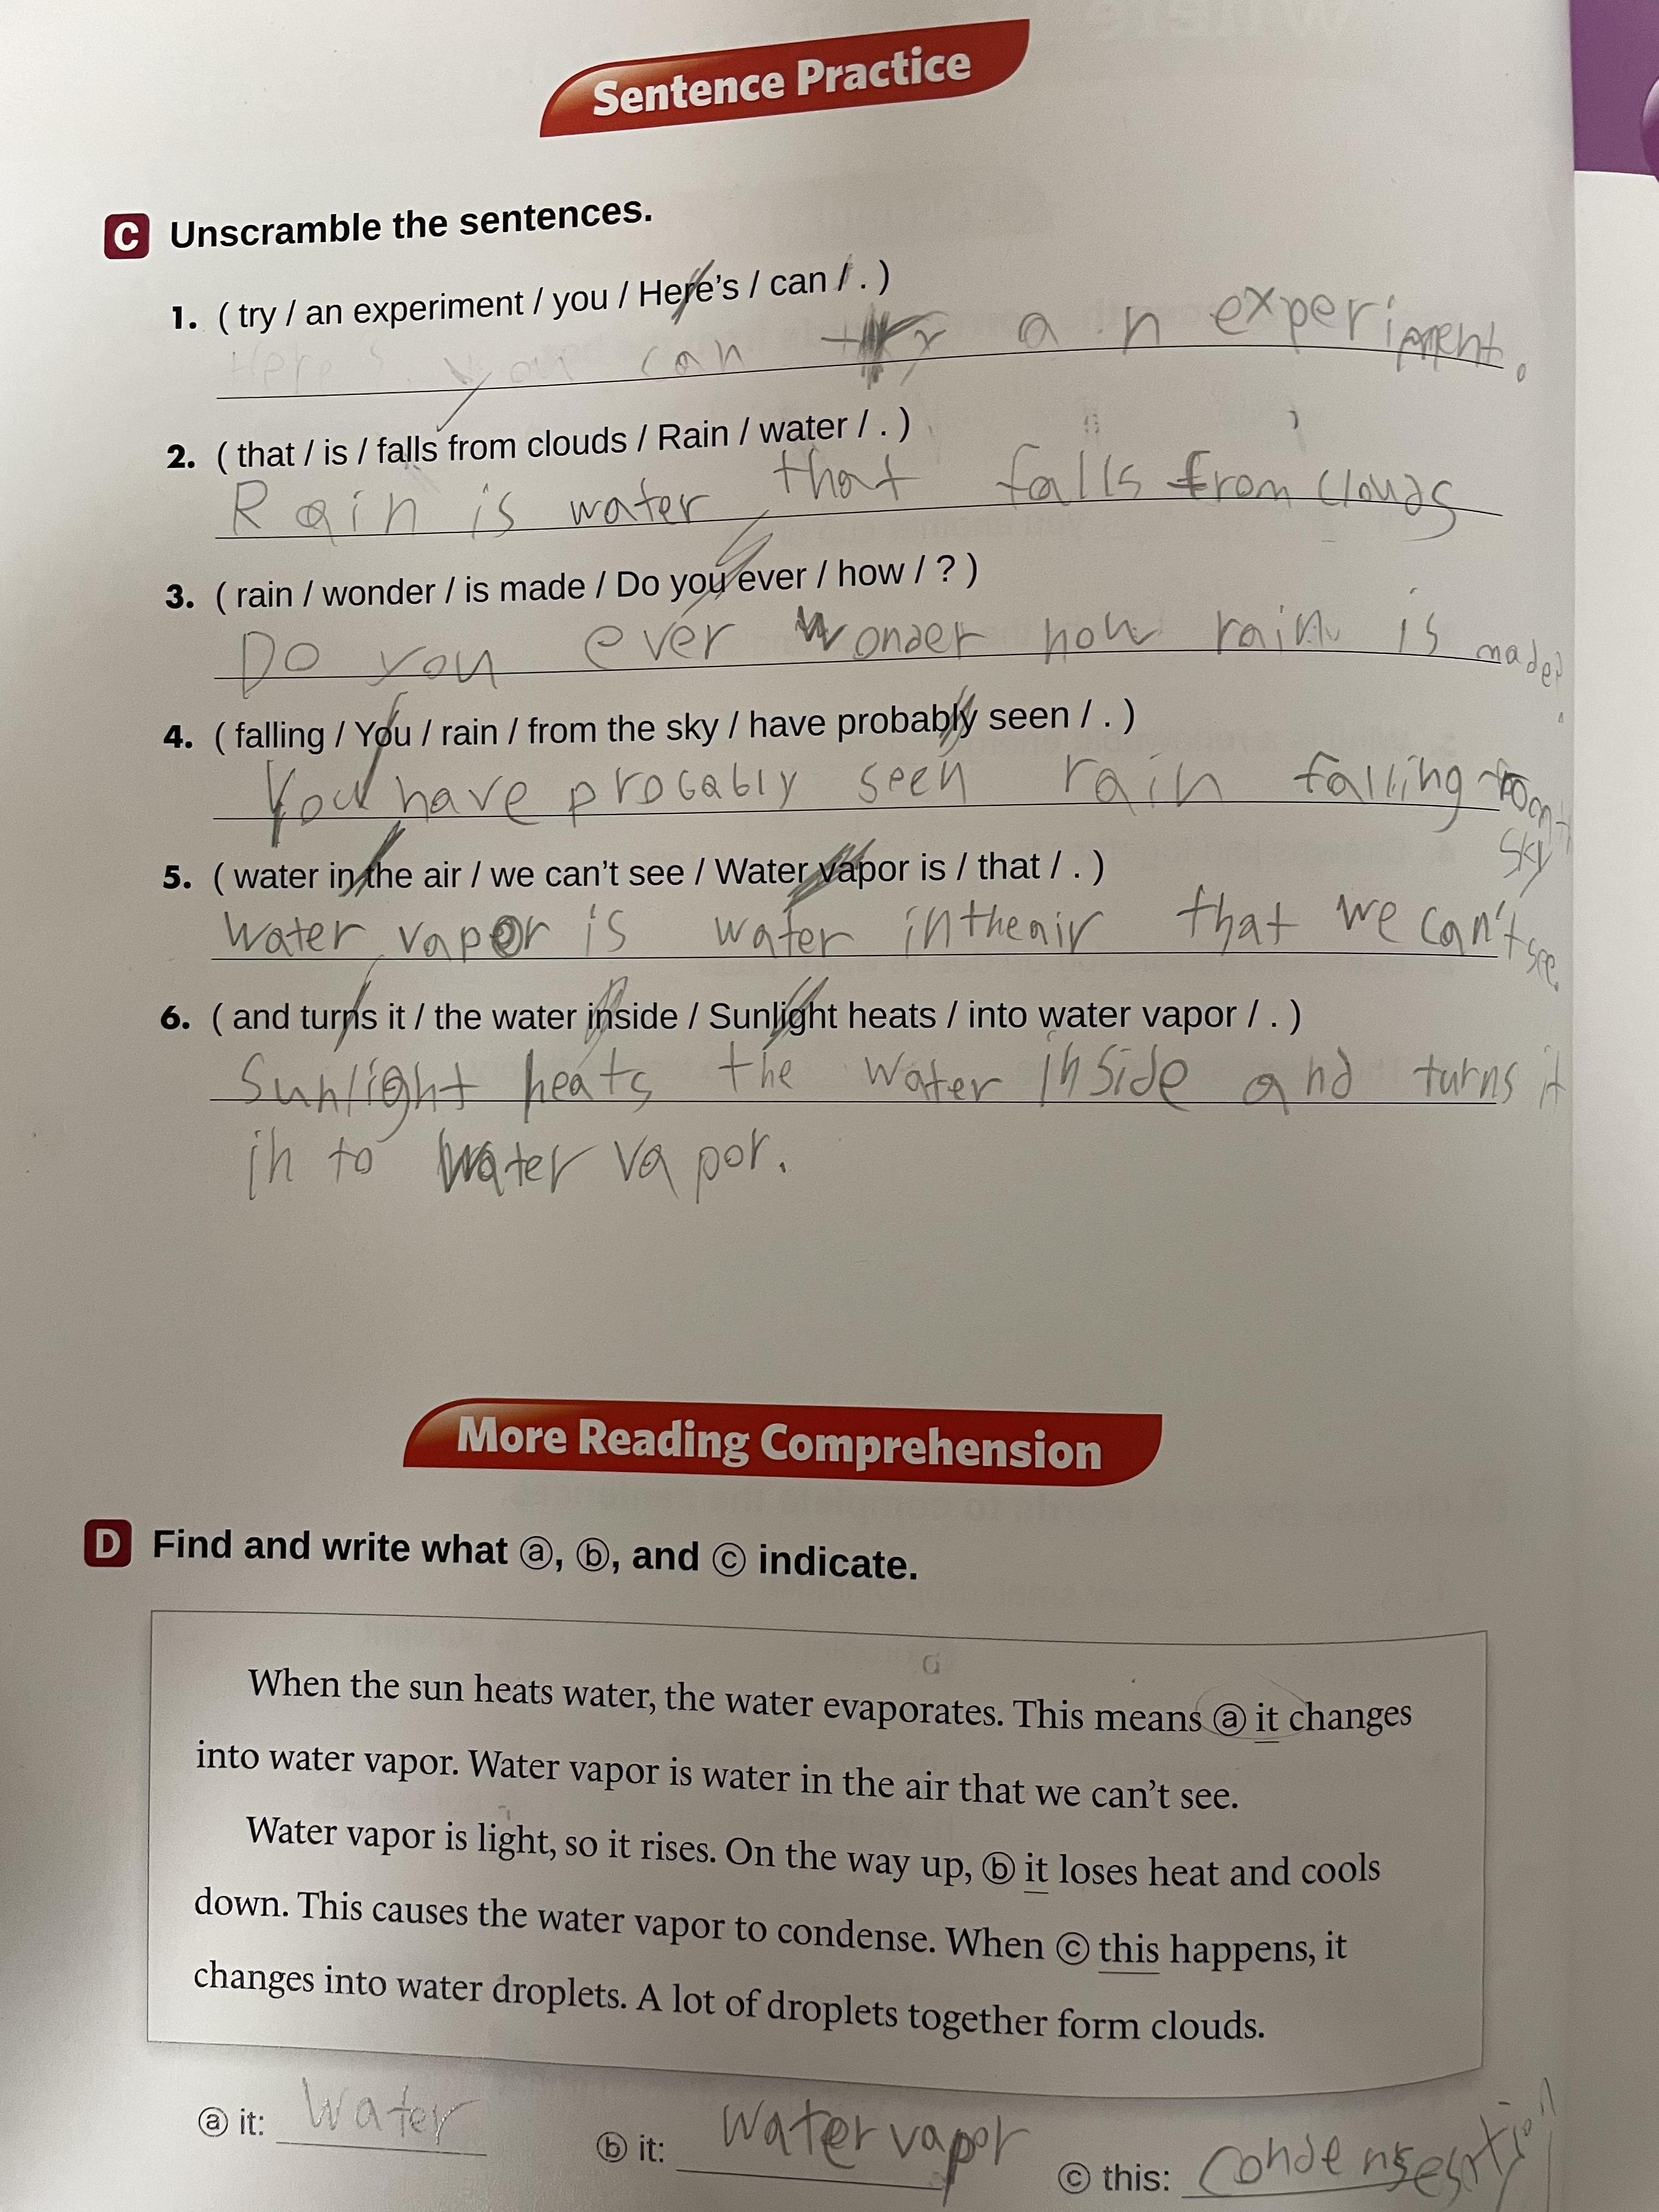 Sentence Practice
C Unscramble the sentences.
1. ( try / an experiment / you / Here's / can / . )
Here's you can try an experiment.
2. ( that / is / falls from clouds / Rain / water / . )
Rain is water that falls from clouds
3. ( rain / wonder / is made / Do you ever / how / ? )
Do you ever wonder how rain is made?
4. ( falling / You / rain / from the sky / have probably seen / . )
You have probably seen rain falling
sky
5. ( water in the air / we can't see / Water vapor is / that / . )
Water vapor is water in the air that we can't see.
6. ( and turns it / the water inside / Sunlight heats / into water vapor / . )
Sunlight heats the water inside and turns it
in to water vapor.
More Reading Comprehension
D Find and write what ⓐ, ⓑ, and ⓒ indicate.
When the sun heats water, the water evaporates. This means ⓐ it changes
into water vapor. Water vapor is water in the air that we can't see.
Water vapor is light, so it rises. On the way up, ⓑ it loses heat and cools
down. This causes the water vapor to condense. When ⓒ this happens, it
changes into water droplets. A lot of droplets together form clouds.
ⓐ it: Water ⓑ it: water vapor ⓒ this: